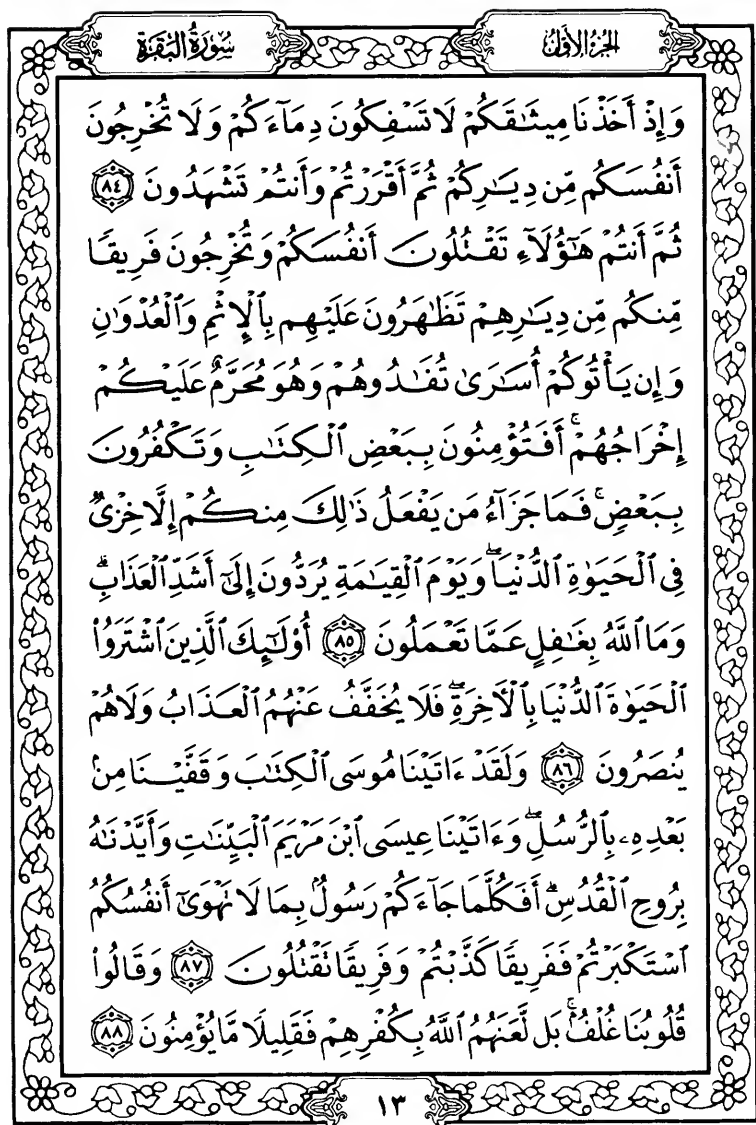 سُورَةُ البَقَرَةِ
الجُزْءُ الأَوَّلُ
وَإِذْ أَخَذْنَا مِيثَٰقَكُمْ لَا تَسْفِكُونَ دِمَآءَكُمْ وَلَا تُخْرِجُونَ
أَنفُسَكُم مِّن دِيَٰرِكُمْ ثُمَّ أَقْرَرْتُمْ وَأَنتُمْ تَشْهَدُونَ ٨٤
ثُمَّ أَنتُمْ هَٰٓؤُلَآءِ تَقْتُلُونَ أَنفُسَكُمْ وَتُخْرِجُونَ فَرِيقًا
مِّنكُم مِّن دِيَٰرِهِمْ تَظَٰهَرُونَ عَلَيْهِم بِٱلْإِثْمِ وَٱلْعُدْوَٰنِ
وَإِن يَأْتُوكُمْ أُسَٰرَىٰ تُفَٰدُوهُمْ وَهُوَ مُحَرَّمٌ عَلَيْكُمْ
إِخْرَاجُهُمْ ۚ أَفَتُؤْمِنُونَ بِبَعْضِ ٱلْكِتَٰبِ وَتَكْفُرُونَ
بِبَعْضٍ ۚ فَمَا جَزَآءُ مَن يَفْعَلُ ذَٰلِكَ مِنكُمْ إِلَّا خِزْىٌ
فِى ٱلْحَيَوٰةِ ٱلدُّنْيَا ۖ وَيَوْمَ ٱلْقِيَٰمَةِ يُرَدُّونَ إِلَىٰٓ أَشَدِّ ٱلْعَذَابِ ۗ
وَمَا ٱللَّهُ بِغَٰفِلٍ عَمَّا تَعْمَلُونَ ٨٥ أُو۟لَٰٓئِكَ ٱلَّذِينَ ٱشْتَرَوُا۟
ٱلْحَيَوٰةَ ٱلدُّنْيَا بِٱلْءَاخِرَةِ ۖ فَلَا يُخَفَّفُ عَنْهُمُ ٱلْعَذَابُ وَلَا هُمْ
يُنصَرُونَ ٨٦ وَلَقَدْ ءَاتَيْنَا مُوسَى ٱلْكِتَٰبَ وَقَفَّيْنَا مِنۢ
بَعْدِهِۦ بِٱلرُّسُلِ ۖ وَءَاتَيْنَا عِيسَى ٱبْنَ مَرْيَمَ ٱلْبَيِّنَٰتِ وَأَيَّدْنَٰهُ
بِرُوحِ ٱلْقُدُسِ ۗ أَفَكُلَّمَا جَآءَكُمْ رَسُولٌۢ بِمَا لَا تَهْوَىٰٓ أَنفُسُكُمُ
ٱسْتَكْبَرْتُمْ فَفَرِيقًا كَذَّبْتُمْ وَفَرِيقًا تَقْتُلُونَ ٨٧ وَقَالُوا۟
قُلُوبُنَا غُلْفٌۢ ۚ بَل لَّعَنَهُمُ ٱللَّهُ بِكُفْرِهِمْ فَقَلِيلًا مَّا يُؤْمِنُونَ ٨٨
١٣